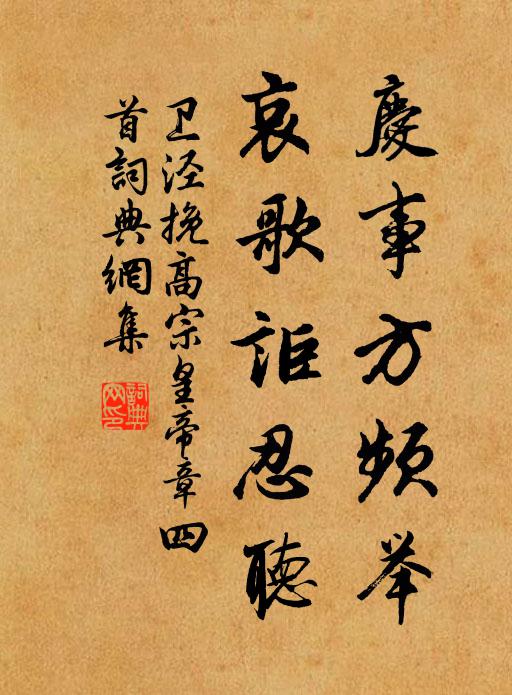 慶事方頻举
哀歌詎忍聽
卫泾挽高宗皇帝章四
首詞典網集
詞典
网印